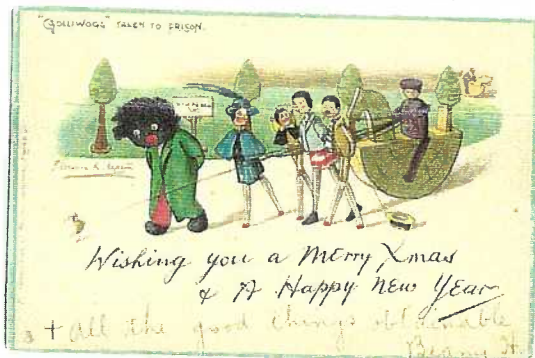 "GOLLIWOGG" TAKEN TO PRISON.
Wishing you a Merry Xmas
& A Happy New Year
+ all the good things obtainable